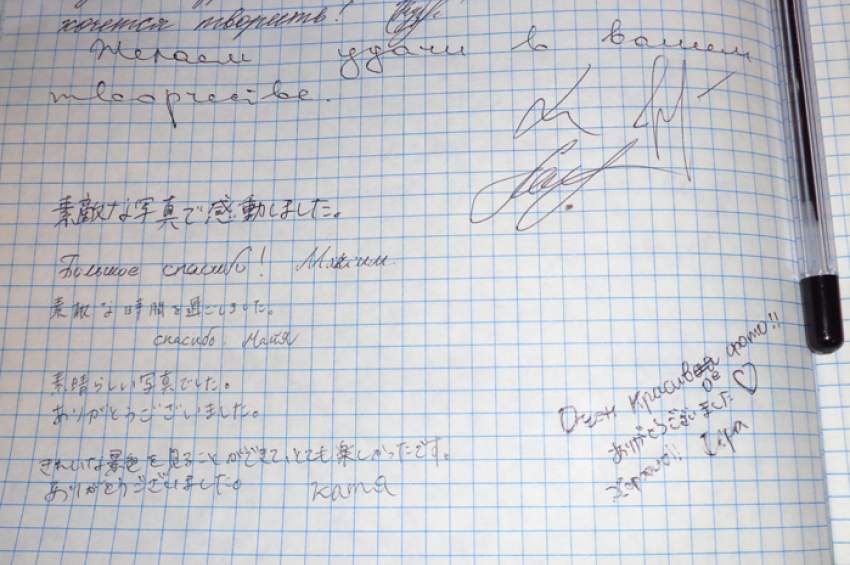 хочется творить!
Желаем удачи в вашем
творчестве.
素敵な写真で感動しました。
Большое спасибо! Максим
素敵な時間を過ごしました。
спасибо. Матя
素晴らしい写真でした。
ありがとうございました。
きれいな景色を見ることができて、とても楽しかったです。
ありがとうございました。
Катя
Очен красивое фото!!
ありがとうございました ♡
Хорошо!! Іра